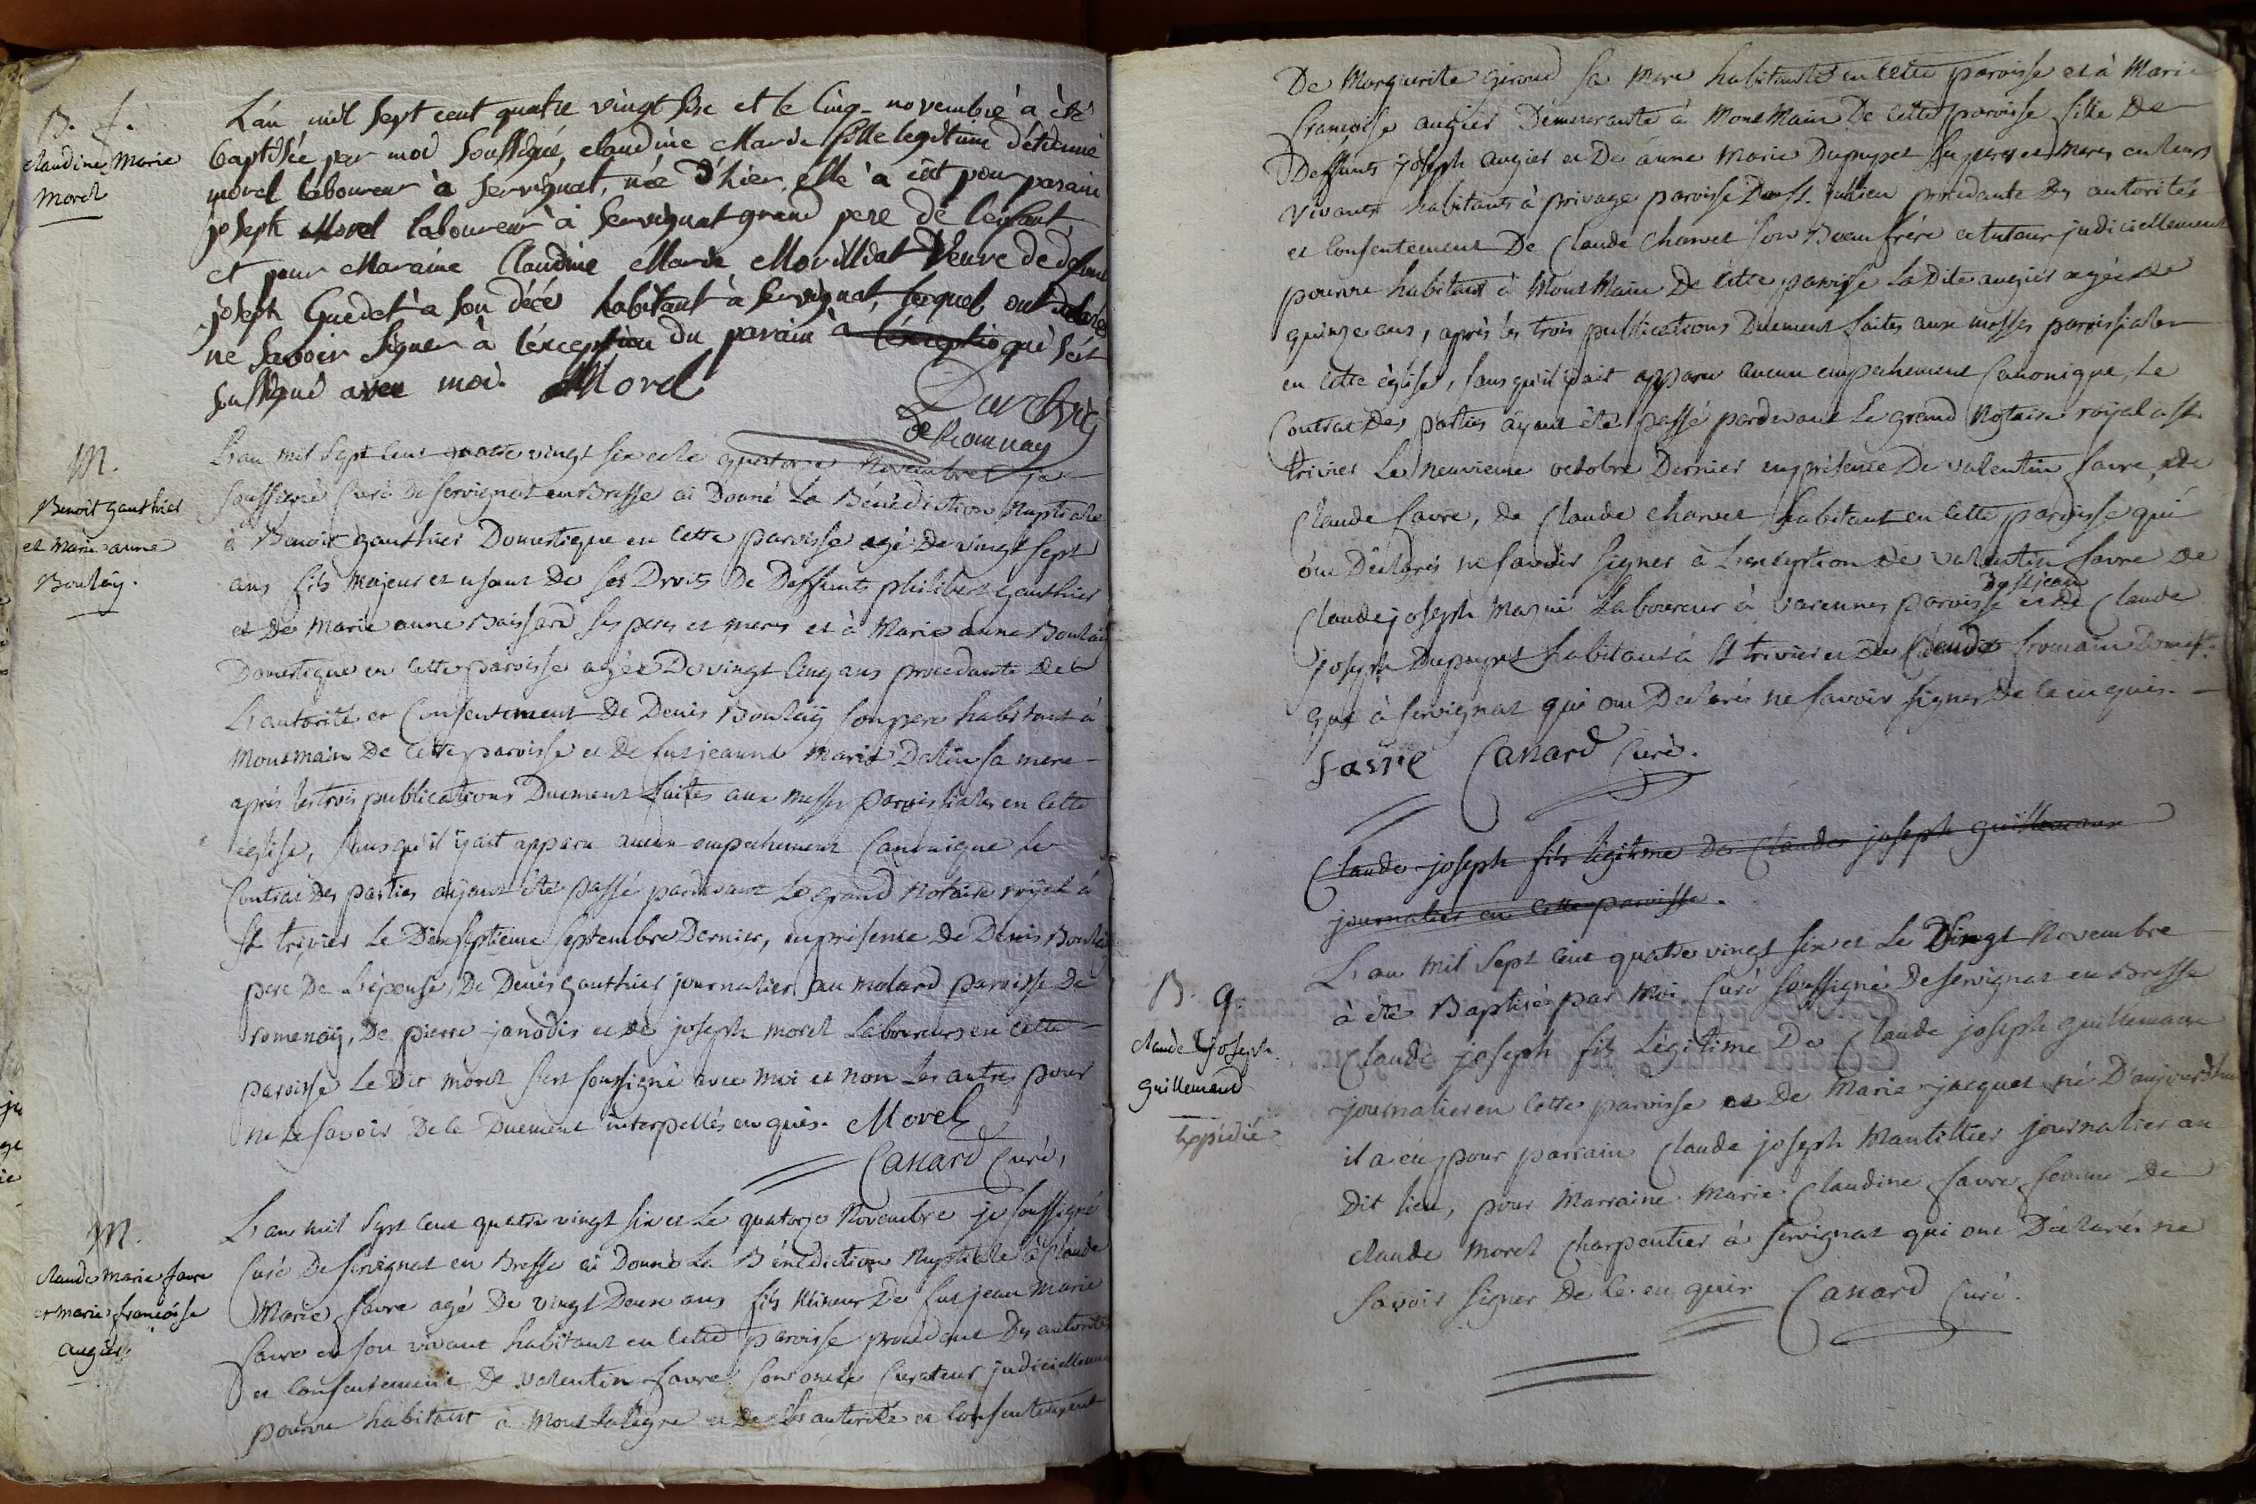 B. f.
claudine Marie
Morel
L'an mil sept cent quatre vingt six et le cinq novembre a èté
baptisée par moi soussigné, claudine Marie fille legitime d'étienne
morel laboureur à servignat, née d'hier, elle à eüt pour parain
joseph Morel laboureur à Servignat grand pere de l'enfant
et pour Maraine Claudine Marie Morilliat Veuve de defunt
joseph Guedet à son décé habitant à Servignat, lequel ont declaré
ne savoir signer à l'exception du parain à l'exceptio qui s'èst
soussigné avec moi. Morel
de Romnay
M.
Benoit gauthier
et Marie anne
Boulay.
L'an mil sept cent quatre vingt six et le quatorze Novembre je
soussigné Curé de servignat en Bresse ai Donné La Bénédiction Nuptiale
à Benoit gauthier Domestique en cette paroisse agé De vingt sept
ans fils majeur et usant de ses Droits De Deffunts philibert gauthier
et De Marie anne Baissard ses peres et meres et à Marie anne Boulaÿ
Domestique en cette paroisse agée De vingt cinq ans procedante de
L'autorité et Consentement De Denis Boulaÿ son pere habitant à
Montmain De cette paroisse et de fut jeanne Marie Dalin sa mere
après les trois publications Duement faites aux messes paroissiales en cette
église, sans qu'il ÿ ait apparu aucun empechement Canonique le
Contrat des parties aÿant été passé pardevant Le grand Notaire roÿal à
St. trivier Le Dixseptieme septembre Dernier, en présence de Denis Boulaÿ
pere De L'épouse, De Denis gauthier journalier au molard paroisse De
romenaÿ, De pierre janodis et de joseph morel Laboureurs en cette
paroisse Le Dit morel s'est soussigné avec moi et non Les autres pour
ne Le savoir De ce Duement interpellés enquis. Morel
Canard Curé,
M.
claude marie favre
et marie françoise
augier.
L'an mil sept cent quatre vingt six et Le quatorze Novembre je soussigné
Curé De servignat en Bresse ai Donné La Bénédiction Nuptiale à Claude
Marie favre agé De vingt Deux ans fils Mineur De fut jean Marie
favre en son vivant habitant en cette paroisse procedant Des autorités
et consentement De valentin favre son oncle Curateur judiciellement
pourvu habitant à Mont et de Les autorité et consentement
De Marguerite giroud sa Mere habitante en cette paroisse et à Marie
françoise augier Démeurante à Mont Main De cette paroisse fille De
Deffunts joseph augier et De anne Marie Dupupet ses peres et meres en leurs
vivants habitants à privage paroisse De St. julien procedante Des autorités
et Consentement De Claude Charvet son Beau frére et tuteur judiciellement
pourvu habitant à Mont Main De cette paroisse La Dite augier agée de
quinze ans, après les trois publications Duement faites aux messes paroissiales
en cette église, sans qu'il ÿ ait apparu aucun empechement Canonique, Le
Contrat Des parties aÿant été passé pardevant Le grand Notaire roÿal à St.
trivier Le Neuvieme octobre Dernier en présence De valentin favre, de
Claude favre, de Claude charvet habitant en cette paroisse qui
ont Déclarés ne savoir signer à L'exception de valentin favre de
De St jean
Claude joseph Mazui Laboureur à varennes paroisse et De Claude
joseph Dupupet habitant à St trivier et de Claude fromain Domest.
que à servignat qui ont Déclarés ne savoir signer De ce enquis.
favre Canard Curé.
Claude joseph fils légitime De Claude joseph guillemaux
journalier en cette paroisse.
B. g.
claude joseph
guillemaud
Expédié
L'an mil sept cent quatre vingt six et Le Vingt Novembre
à été Baptisé par Moi Curé soussigné De servignat en Bresse
Claude joseph fils Légitime De Claude joseph guillemaux
journalier en cette paroisse et De Marie jacquet né D'aujourd'hui
il a eu pour parrain Claude joseph Mantillier journalier au
Dit lieu, pour Marraine Marie Claudine favre femme De
claude Morel Charpentier à servignat qui ont Déclarés ne
savoir signer De ce enquis Canard Curé.